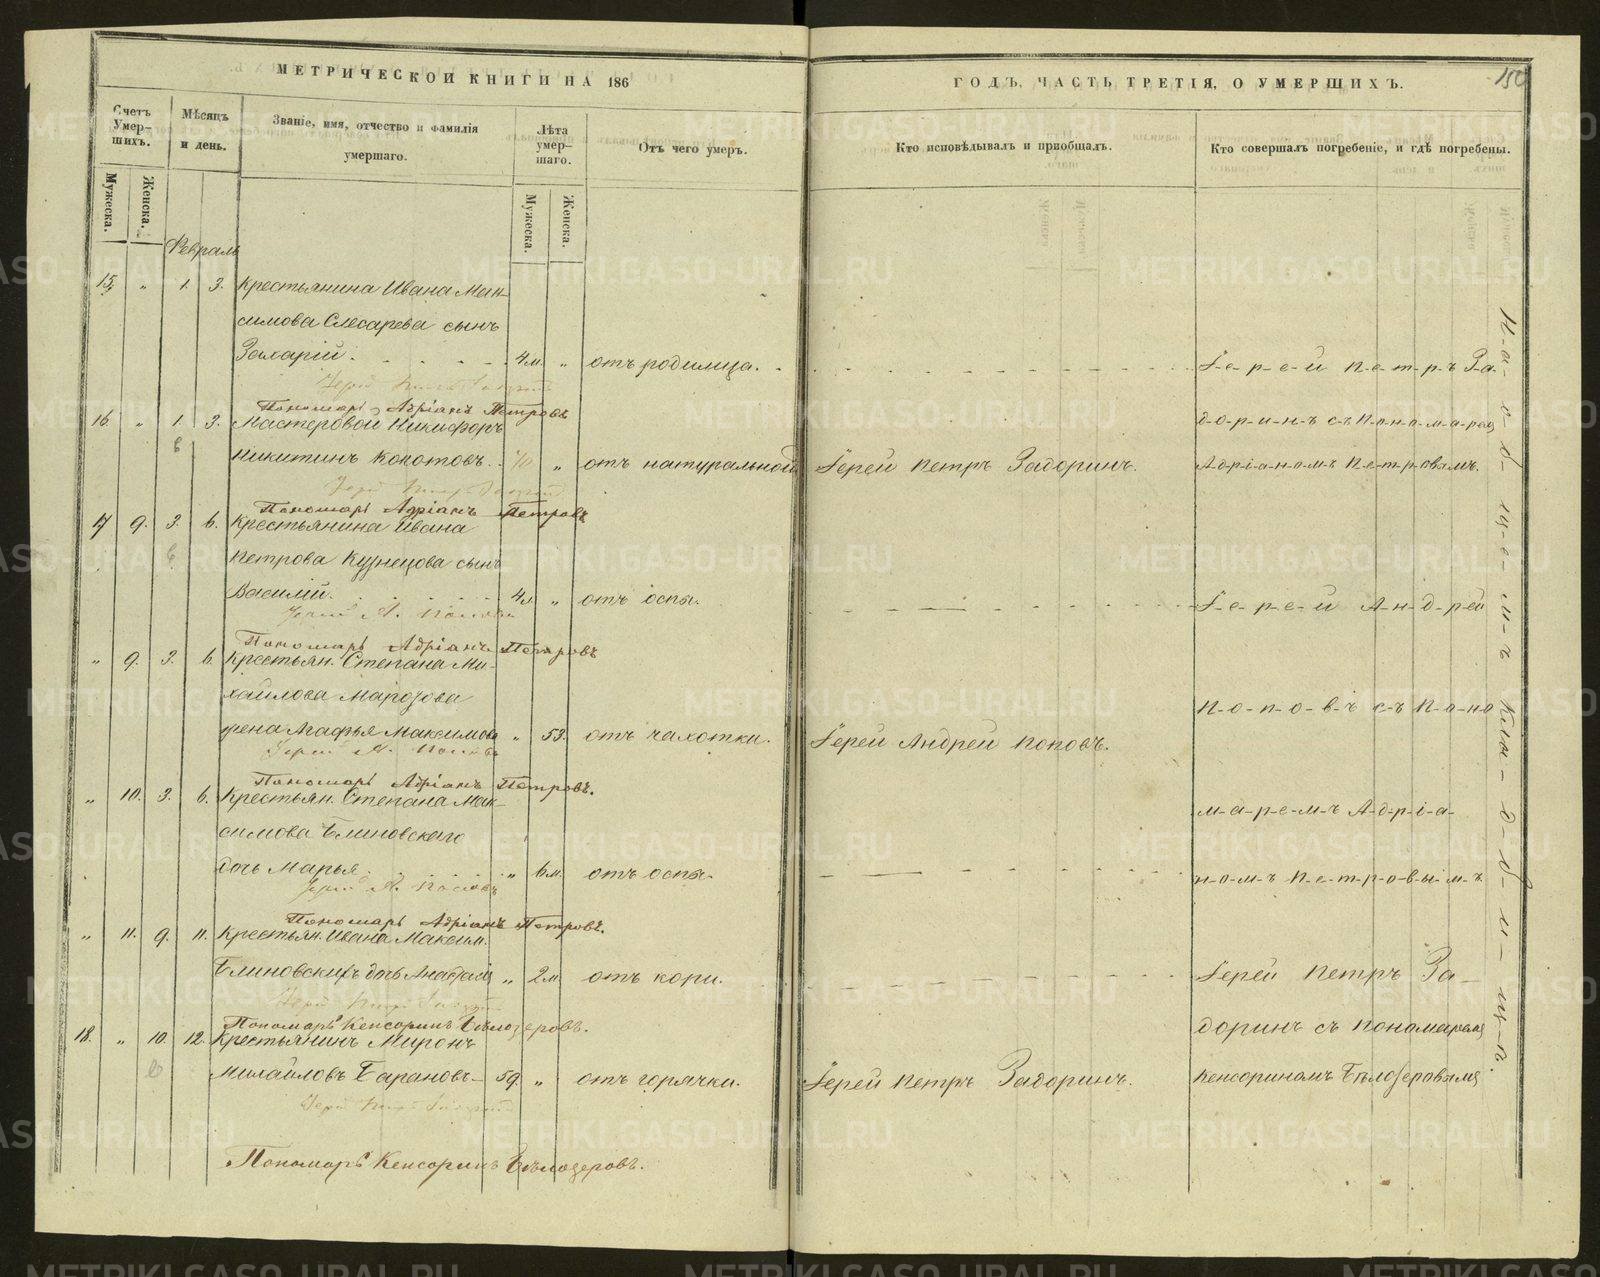 МЕТРИЧЕСКОЙ КНИГИ НА 186
ГОДЪ, ЧАСТЬ ТРЕТІЯ, О УМЕРШИХЪ.
150
Счетъ Умер-шихъ.
Мужеска.
Женска.
Мѣсяцъ и день.
Званіе, имя, отчество и фамилія умершаго.
Лѣта умер-шаго.
Мужеска.
Женска.
Отъ чего умеръ.
Кто исповѣдывалъ и пріобщалъ.
Кто совершалъ погребеніе, и гдѣ погребены.
Февраль
15. " 1. 3. Крестьянина Ивана Мак-
симова Слесарева сынъ
Захарій. 4м. " отъ родимца.
Іерей Петръ За-
Пономарь Адріанъ Петровъ
16. " 1. 3. Мастеровой Никифоръ
доринъ съ Пономаремъ
Никитинъ Копотовъ. 70 " отъ натуральной Іерей Петръ Задоринъ.
Адріаномъ Петровымъ.
Пономарь Адріанъ Петровъ
17 9. 3. 6. Крестьянина Ивана
Петрова Кузнецова сынъ
Василій. 4м " отъ оспы.
Іерей Андрей
Іерей А. Поповъ
Пономарь Адріанъ Петровъ
" 9. 3. 6. Крестьян. Степана Ми-
хайлова Марозова
Поповъ съ Поно
жена Агафья Максимова " 53. отъ чахотки. Іерей Андрей Поповъ.
Іерей А. Поповъ
Пономарь Адріанъ Петровъ.
" 10. 3. 6. Крестьян. Степана Мак-
маремъ Адріа-
симова Блиновскаго
дочь Марья " 6м. отъ оспы.
номъ Петровымъ
Іерей А. Поповъ
Пономарь Адріанъ Петровъ.
" 11. 9. 11. Крестьян. Ивана Максим.
Блиновскихъ дочь " 2м отъ кори.
Іерей Петръ За-
Пономарь Кенсоринъ Бѣлозеровъ.
доринъ съ Пономаремъ
18. " 10. 12. Крестьянинъ Миронъ
Михайловъ Барановъ 59. " отъ горячки. Іерей Петръ Задоринъ.
Кенсориномъ Бѣлозеровымъ
Пономарь Кенсоринъ Бѣлозеровъ.
На общемъ кладбищѣ.
METRIKI.GASO-URAL.RU